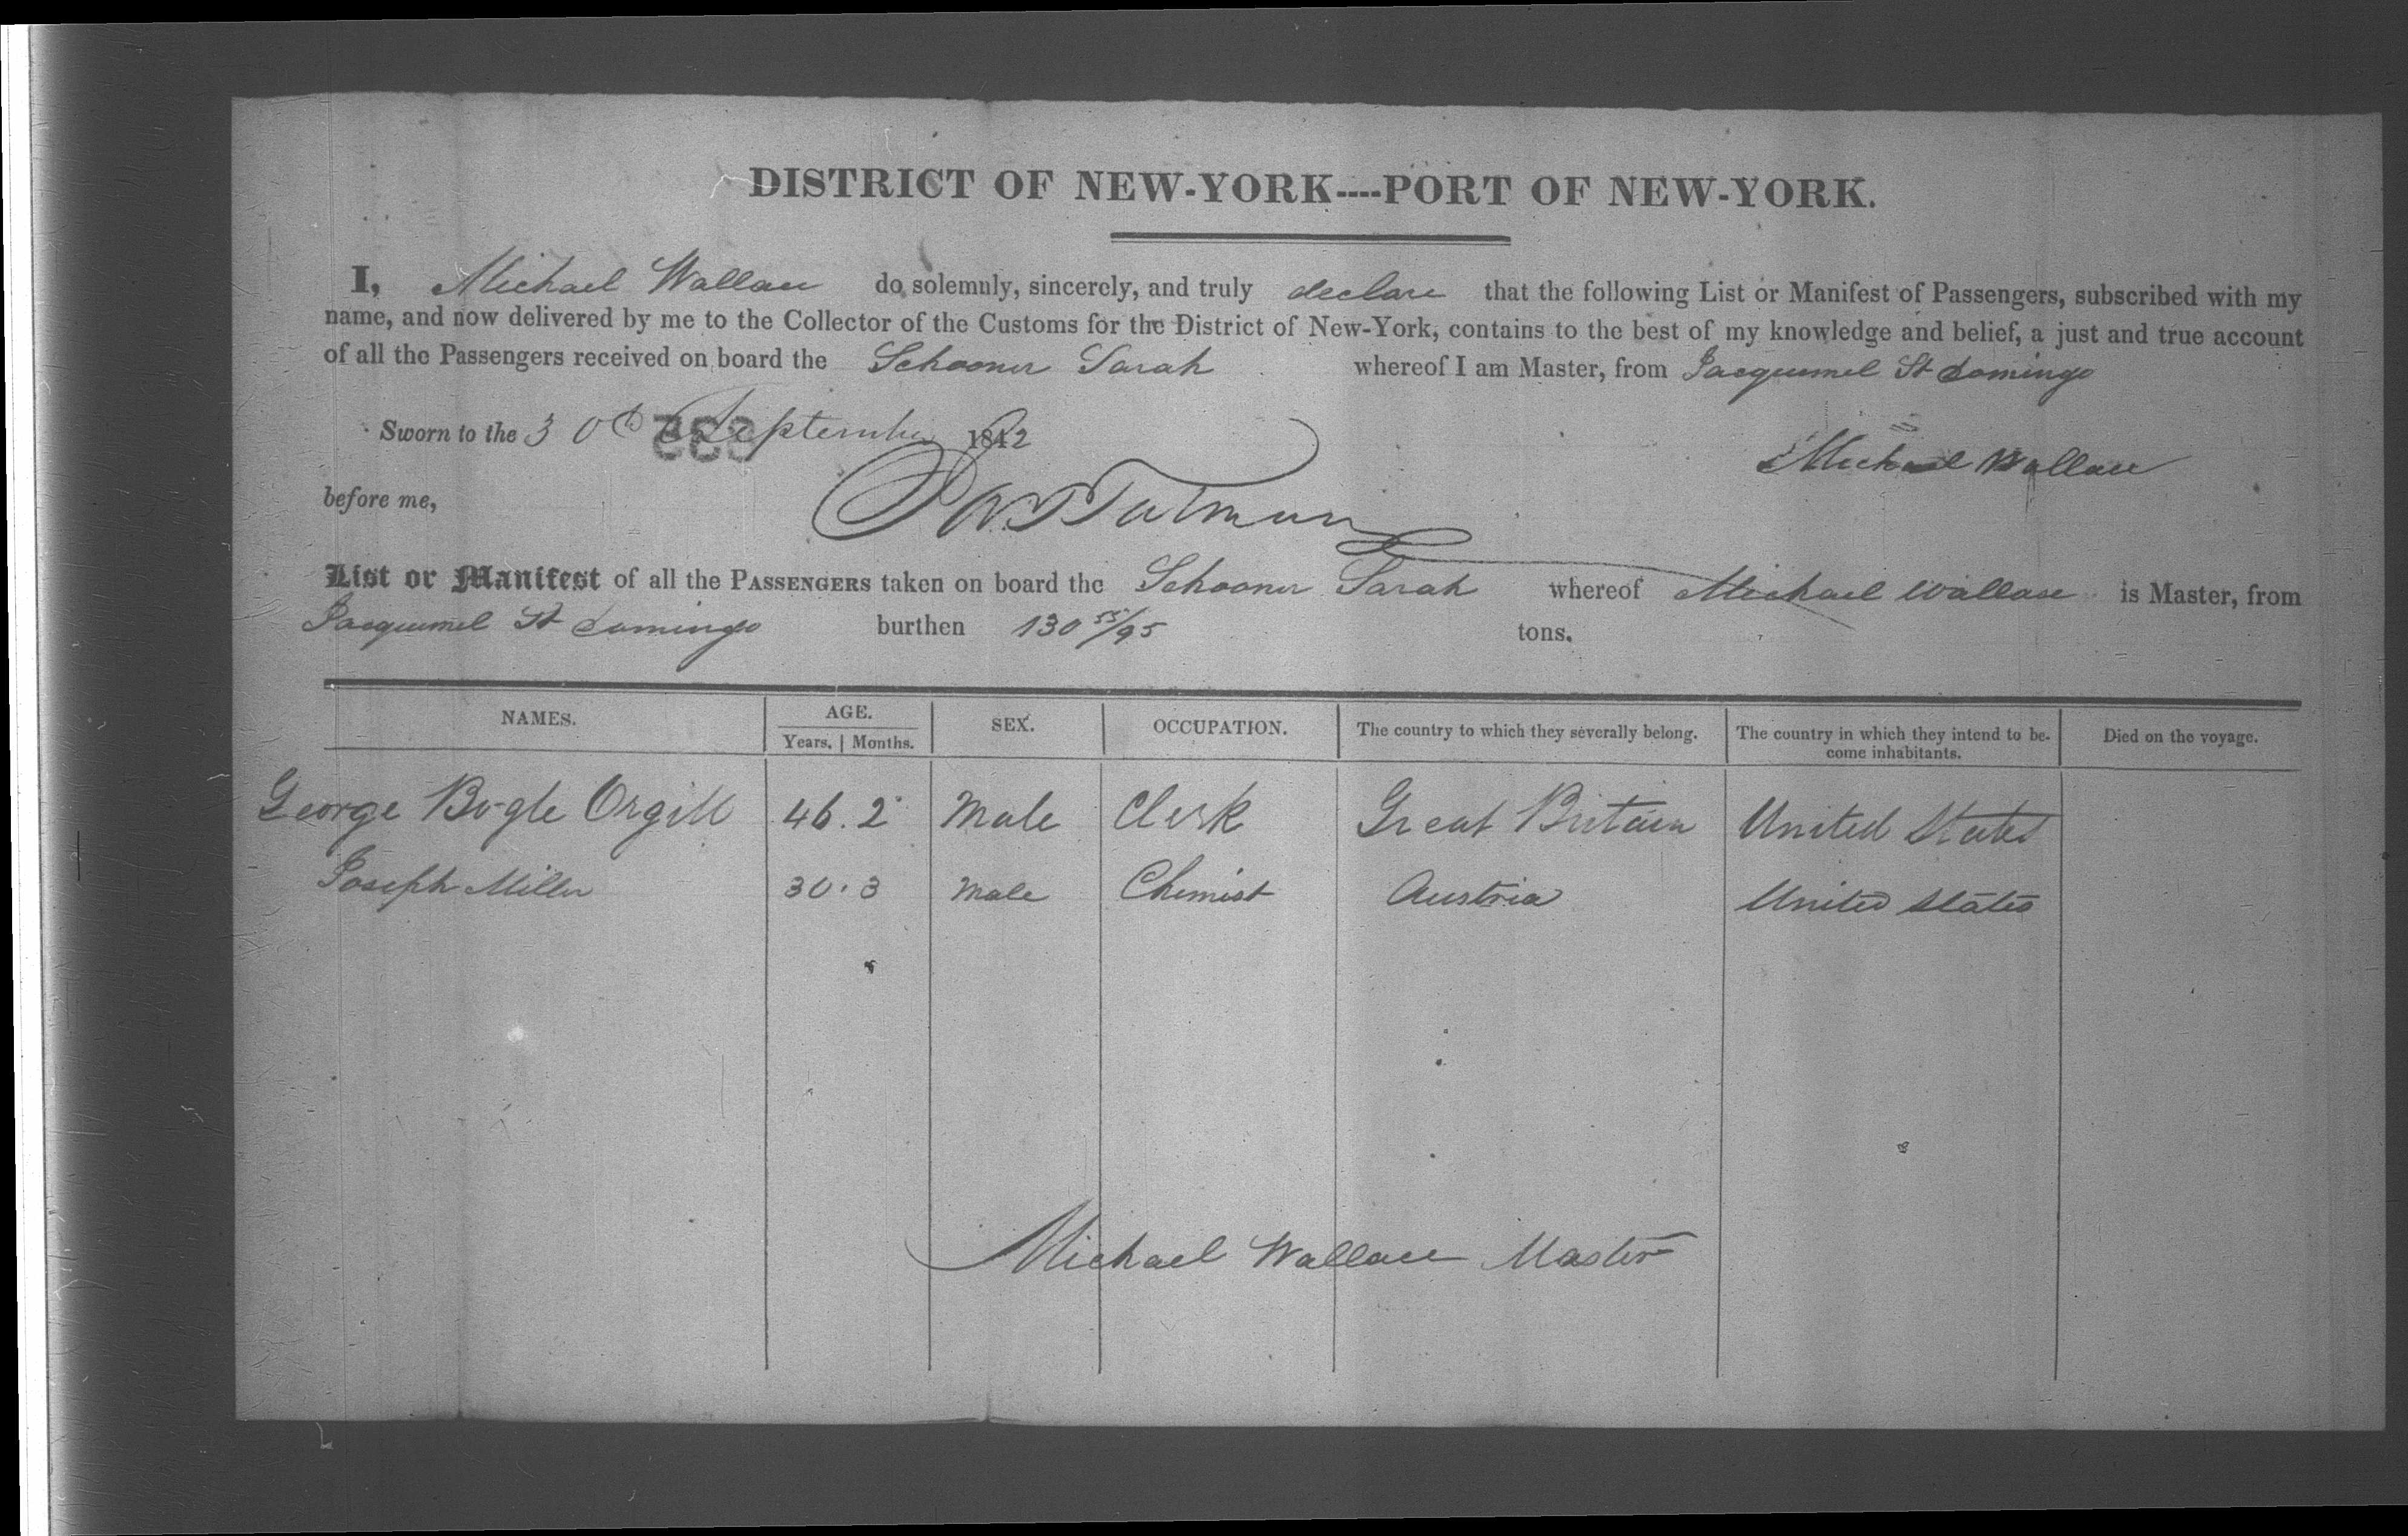 DISTRICT OF NEW-YORK----PORT OF NEW-YORK.
I, Michael Wallace do solemnly, sincerely, and truly declare that the following List or Manifest of Passengers, subscribed with my
name, and now delivered by me to the Collector of the Customs for the District of New-York, contains to the best of my knowledge and belief, a just and true account
of all the Passengers received on board the Schooner Sarah whereof I am Master, from Jacquemel St domingo
Sworn to the 30th September 1842
Michael Wallace
before me,
List or Manifest of all the PASSENGERS taken on board the Schooner Sarah whereof Michael Wallace is Master, from
Jacquemel St domingo burthen 130 55/95 tons.
NAMES. AGE. Years. | Months. SEX. OCCUPATION. The country to which they severally belong. The country in which they intend to be-come inhabitants. Died on the voyage.
George Bogle Orgill 46. 2 Male Clerk Great Britain United States
Joseph Miller 30. 3 Male Chemist Austria United States
Michael Wallace Master